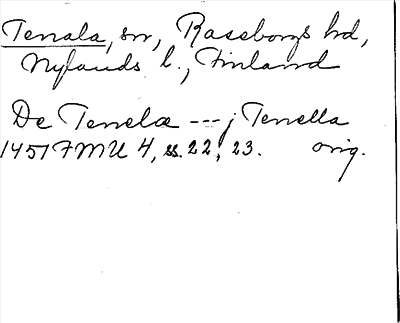 Tenala, sn, Raseborgs hd,
Nylands l., Finland
De Tenelæ ---j Tenella
1451 FMU 4, ss. 22, 23. orig.